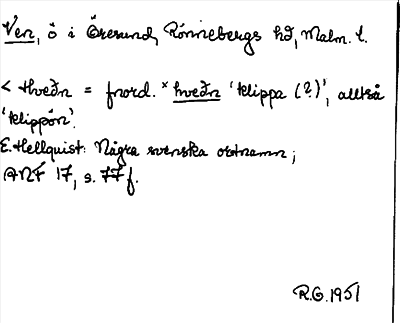 Ven, ö i Öresund, Rönnebergs hd, Malm. l.
< Hveðn = fnord. *hveðn 'klippa (?)', alltså
'klippön'.
E. Hellquist: Några svenska ortnamn;
ANF 17, s. 77 f.
R.G. 1951